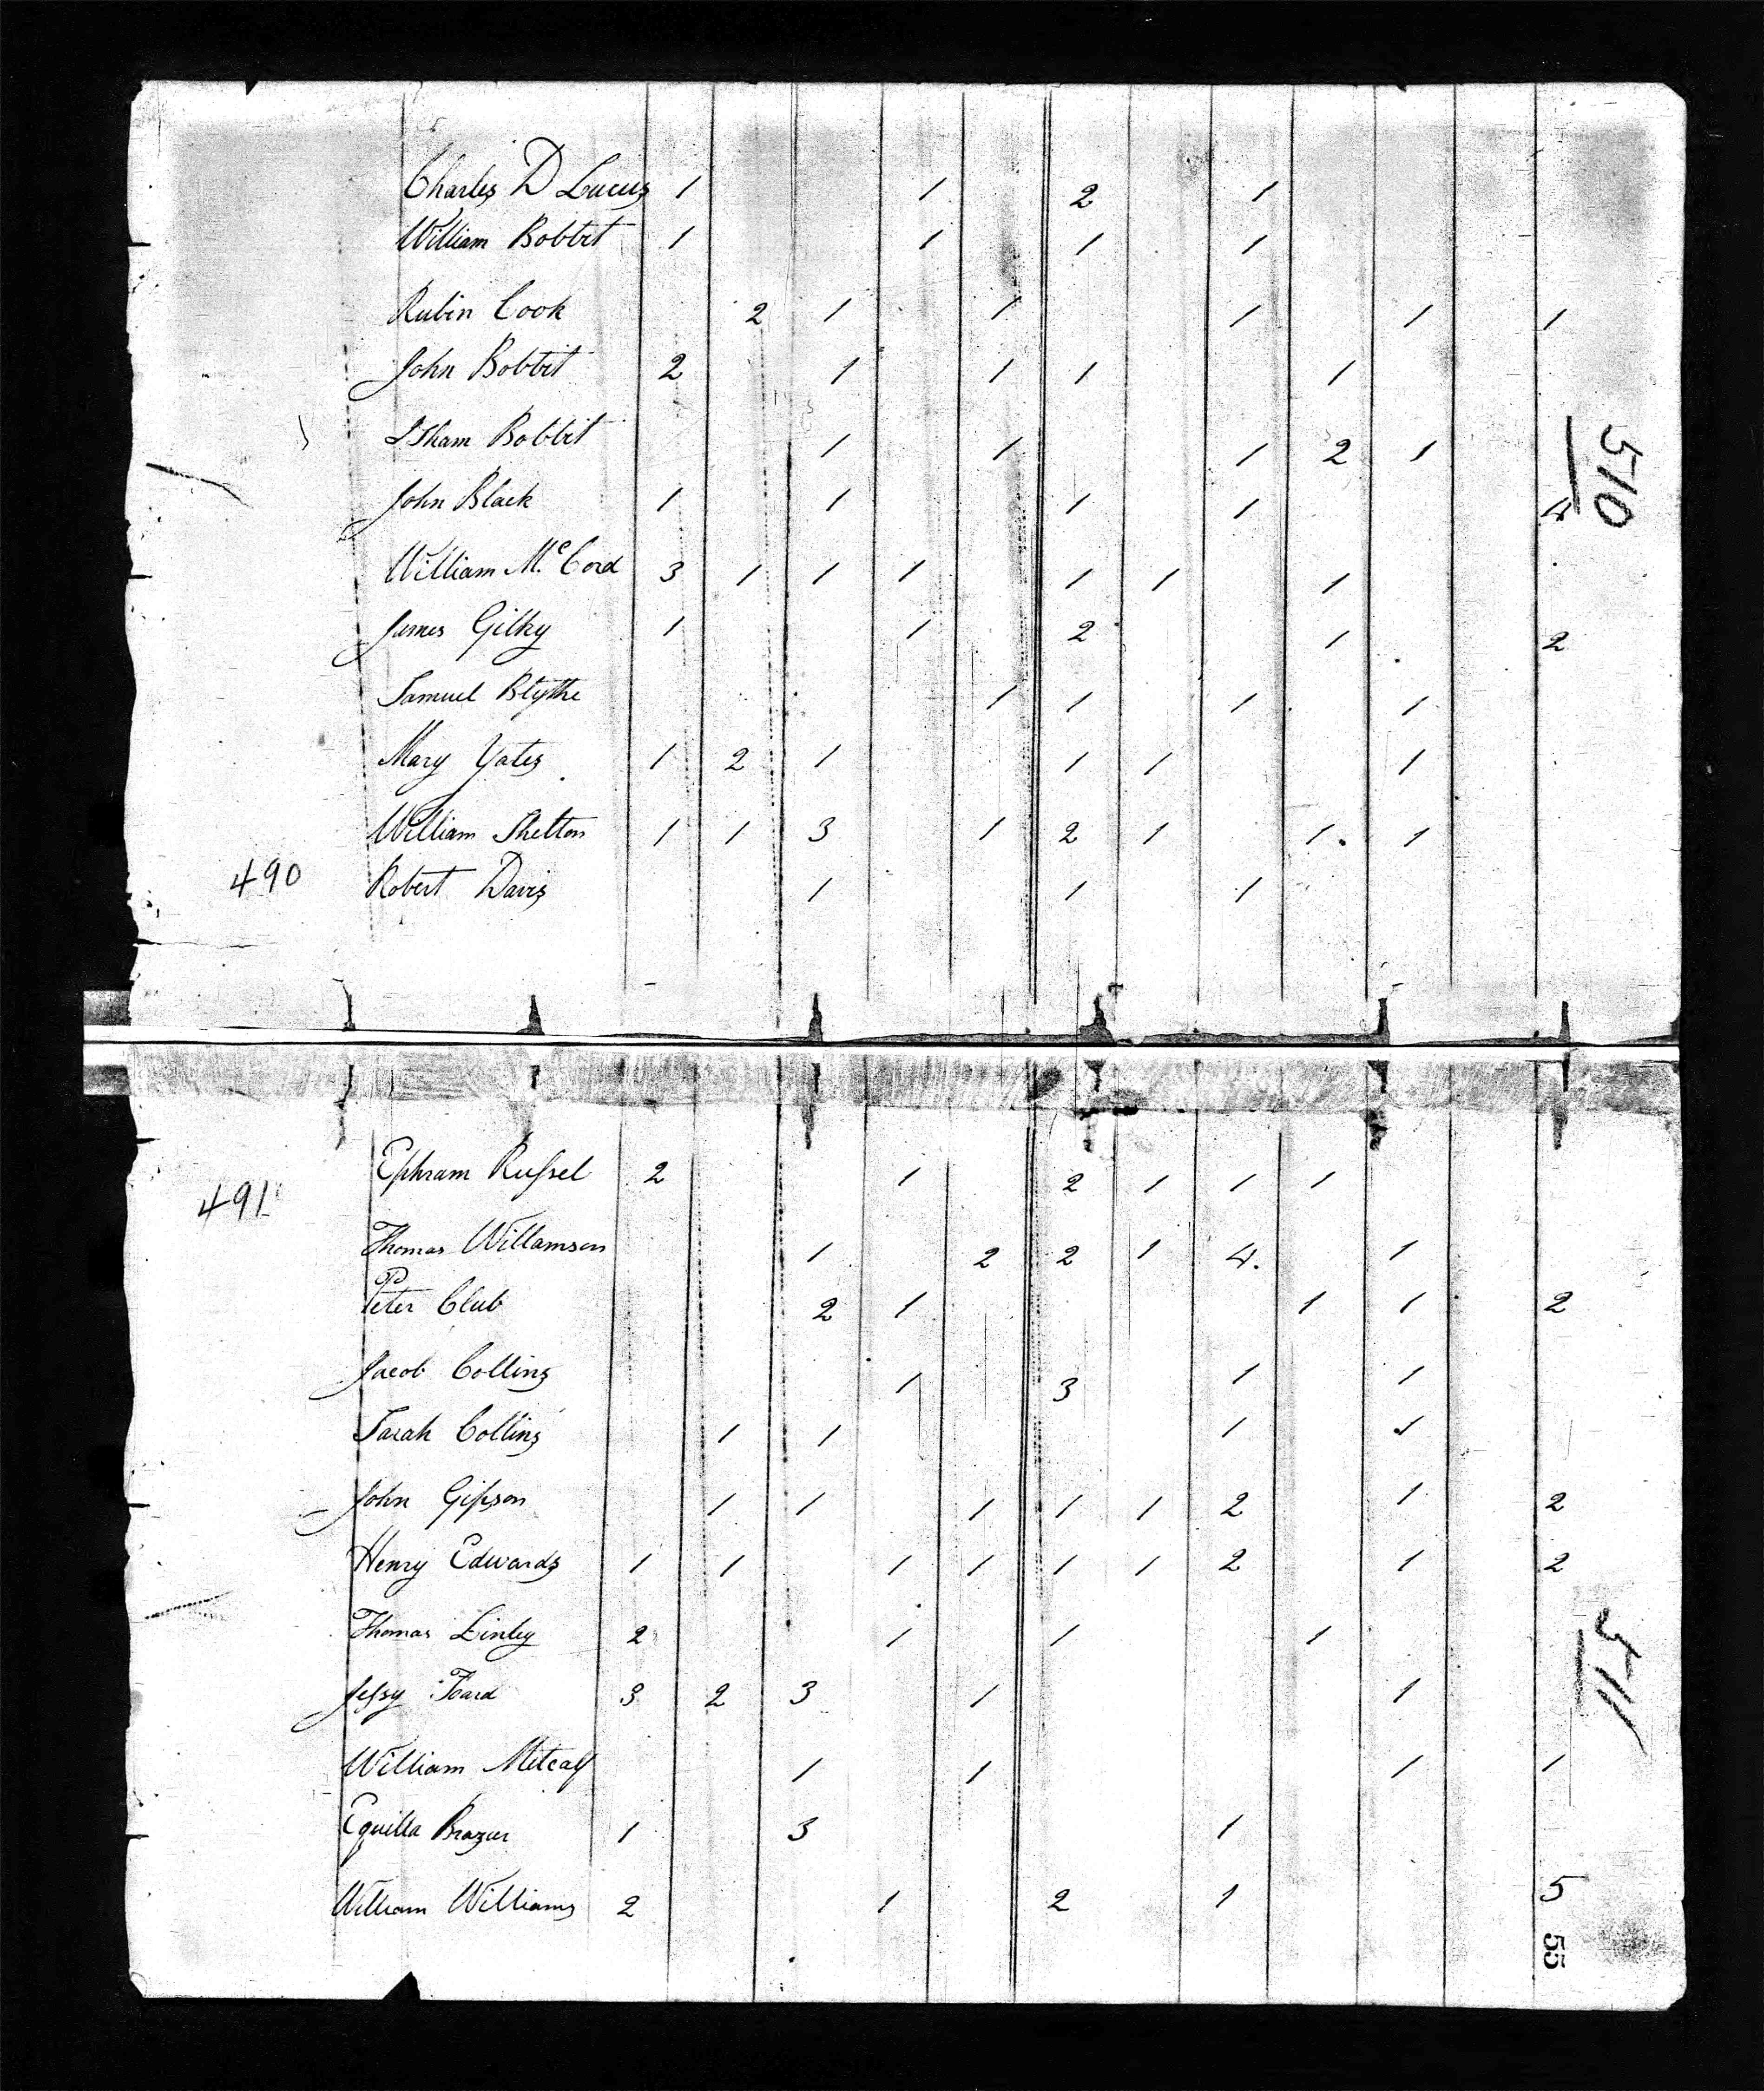 Charles D Lucus 1 1 2 1
William Bobbit 1 1 1 1
Rubin Cook 2 1 1 1 1 1
John Bobbit 2 1 1 1 1
Isham Bobbit 1 1 1 2 1
510
John Black 1 1 1 1 4
William McCord 3 1 1 1 1 1 1
James Gilky 1 1 2 1 2
Samuel Blythe 1 1 1 1
Mary Yates 1 2 1 1 1 1
William Shelton 1 1 3 1 2 1 1 1
490 Robert Davis 1 1 1
Ephram Rufsel 2 1 2 1 1 1
491
Thomas Willamson 1 2 2 1 4 1
Peter Club 2 1 1 1 2
Jacob Collins 1 3 1 1
Sarah Collins 1 1 1 1
John Gipson 1 1 1 1 1 2 1 2
Henry Edwards 1 1 1 1 1 1 2 1 2
Thomas Linley 2 1 1 1
511
Jefsy Foard 3 2 3 1 1
William Metcalf 1 1 1 1
Equilla Brazur 1 3 1
William Williams 2 1 2 1 5
55